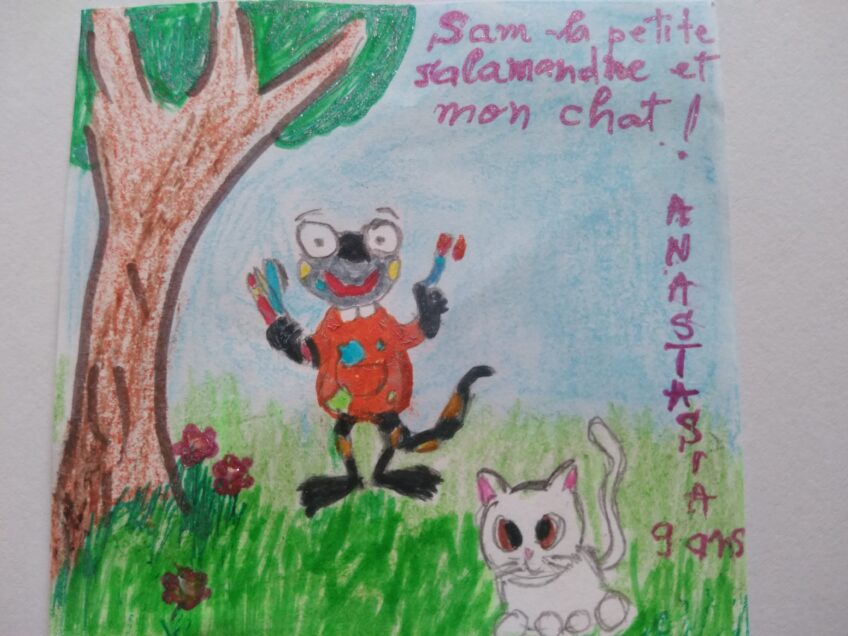 Sam la petite
salamandre et
mon chat !
ANASTASIA
9 ans